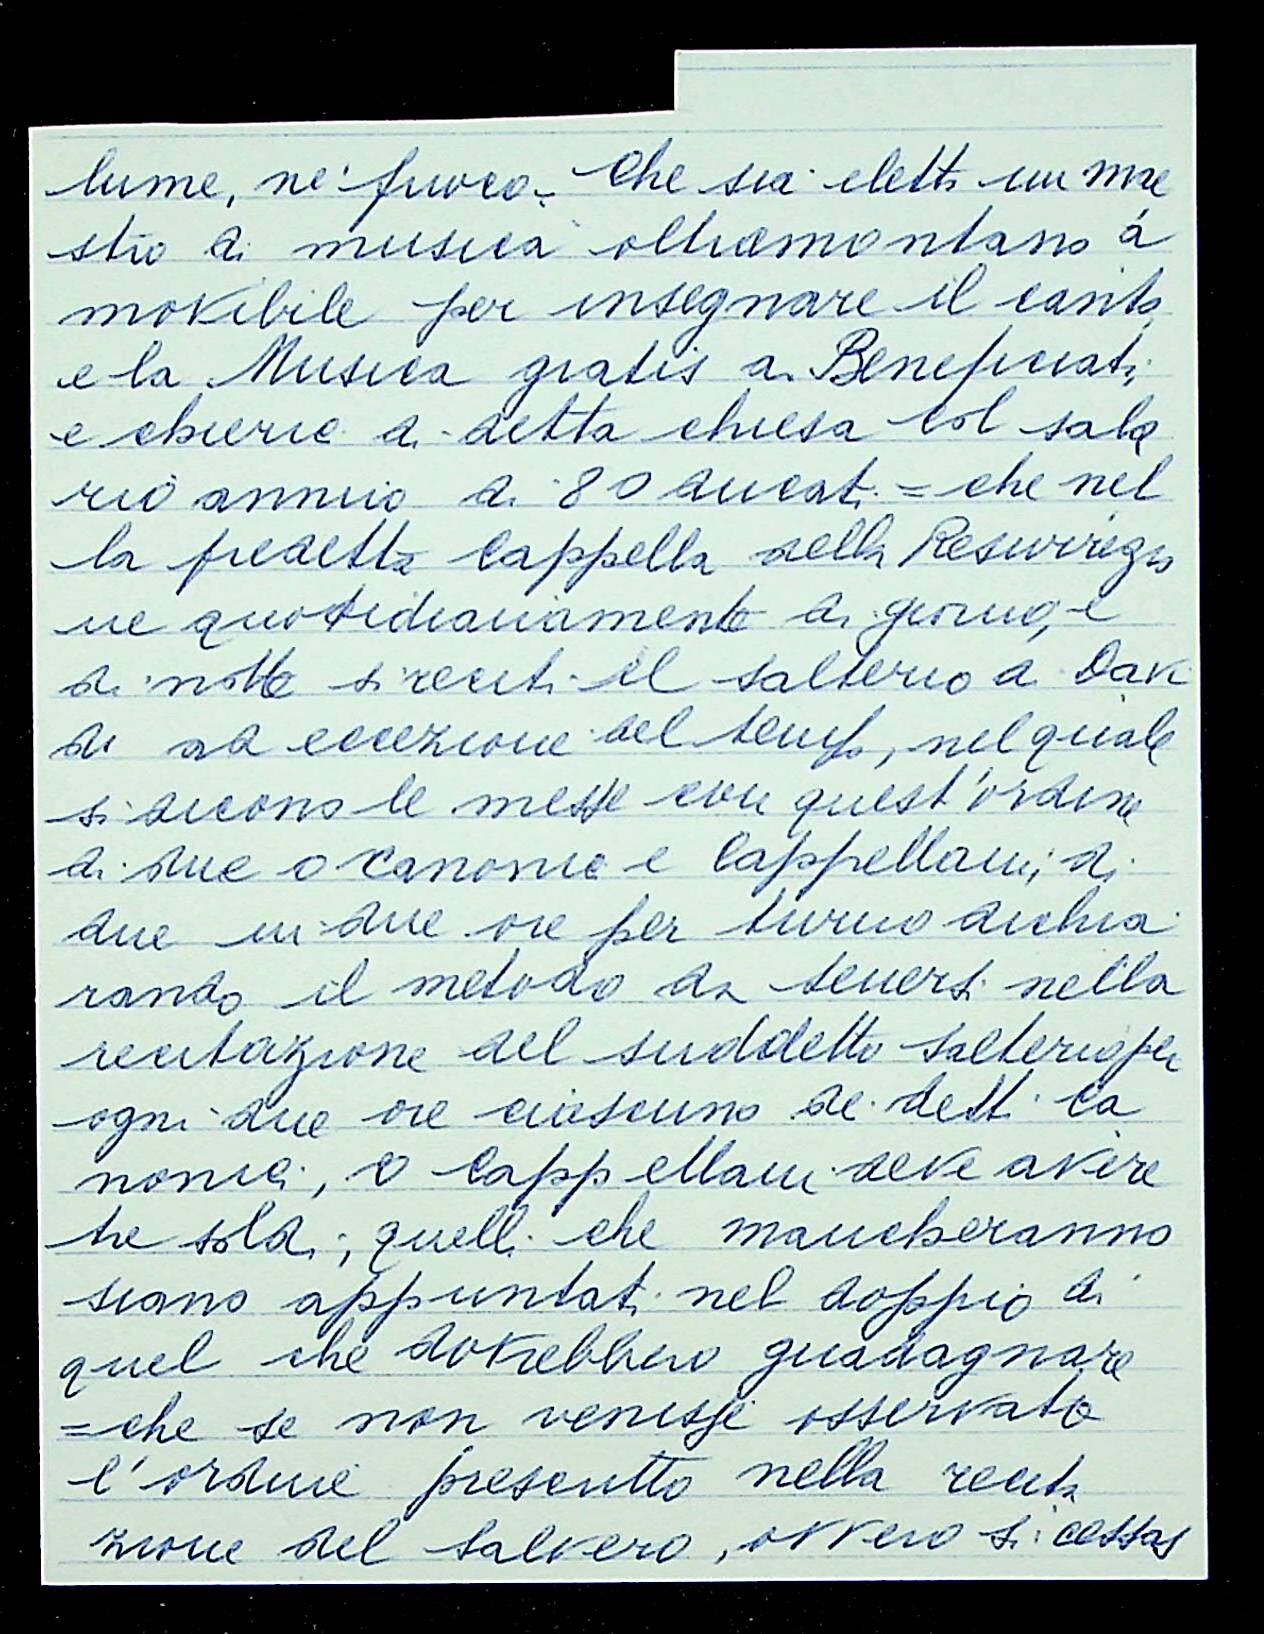 lume, ne' fuoco = Che sia eletto un mae
stro di musica oltramontano a
movibile per insegnare il canto
e la Musica gratis a' Beneficiati
e chierici di detta chiesa col sala
rio annuo di 80 ducati = che nel
la predetta Cappella della Resurrezio
ne quotidianamente di giorno, e
di notte si reciti il salterio di Davi
de ad eccezione del tempo, nel quale
si dicono le messe con quest'ordine
di due o canonici e Cappellani, di
due in due ore per turno dichia
rando il metodo da tenersi nella
recitazione del suddetto salterio per
ogni due ore ciascuno de' detti ca
nonici, o Cappellani deve avere
tre soldi; quelli che mancheranno
siano appuntati nel doppio di
quel che dovrebbero guadagnare
= che se non venisse osservato
l'ordine prescritto nella recita
zione del salterio, ovvero si cessas